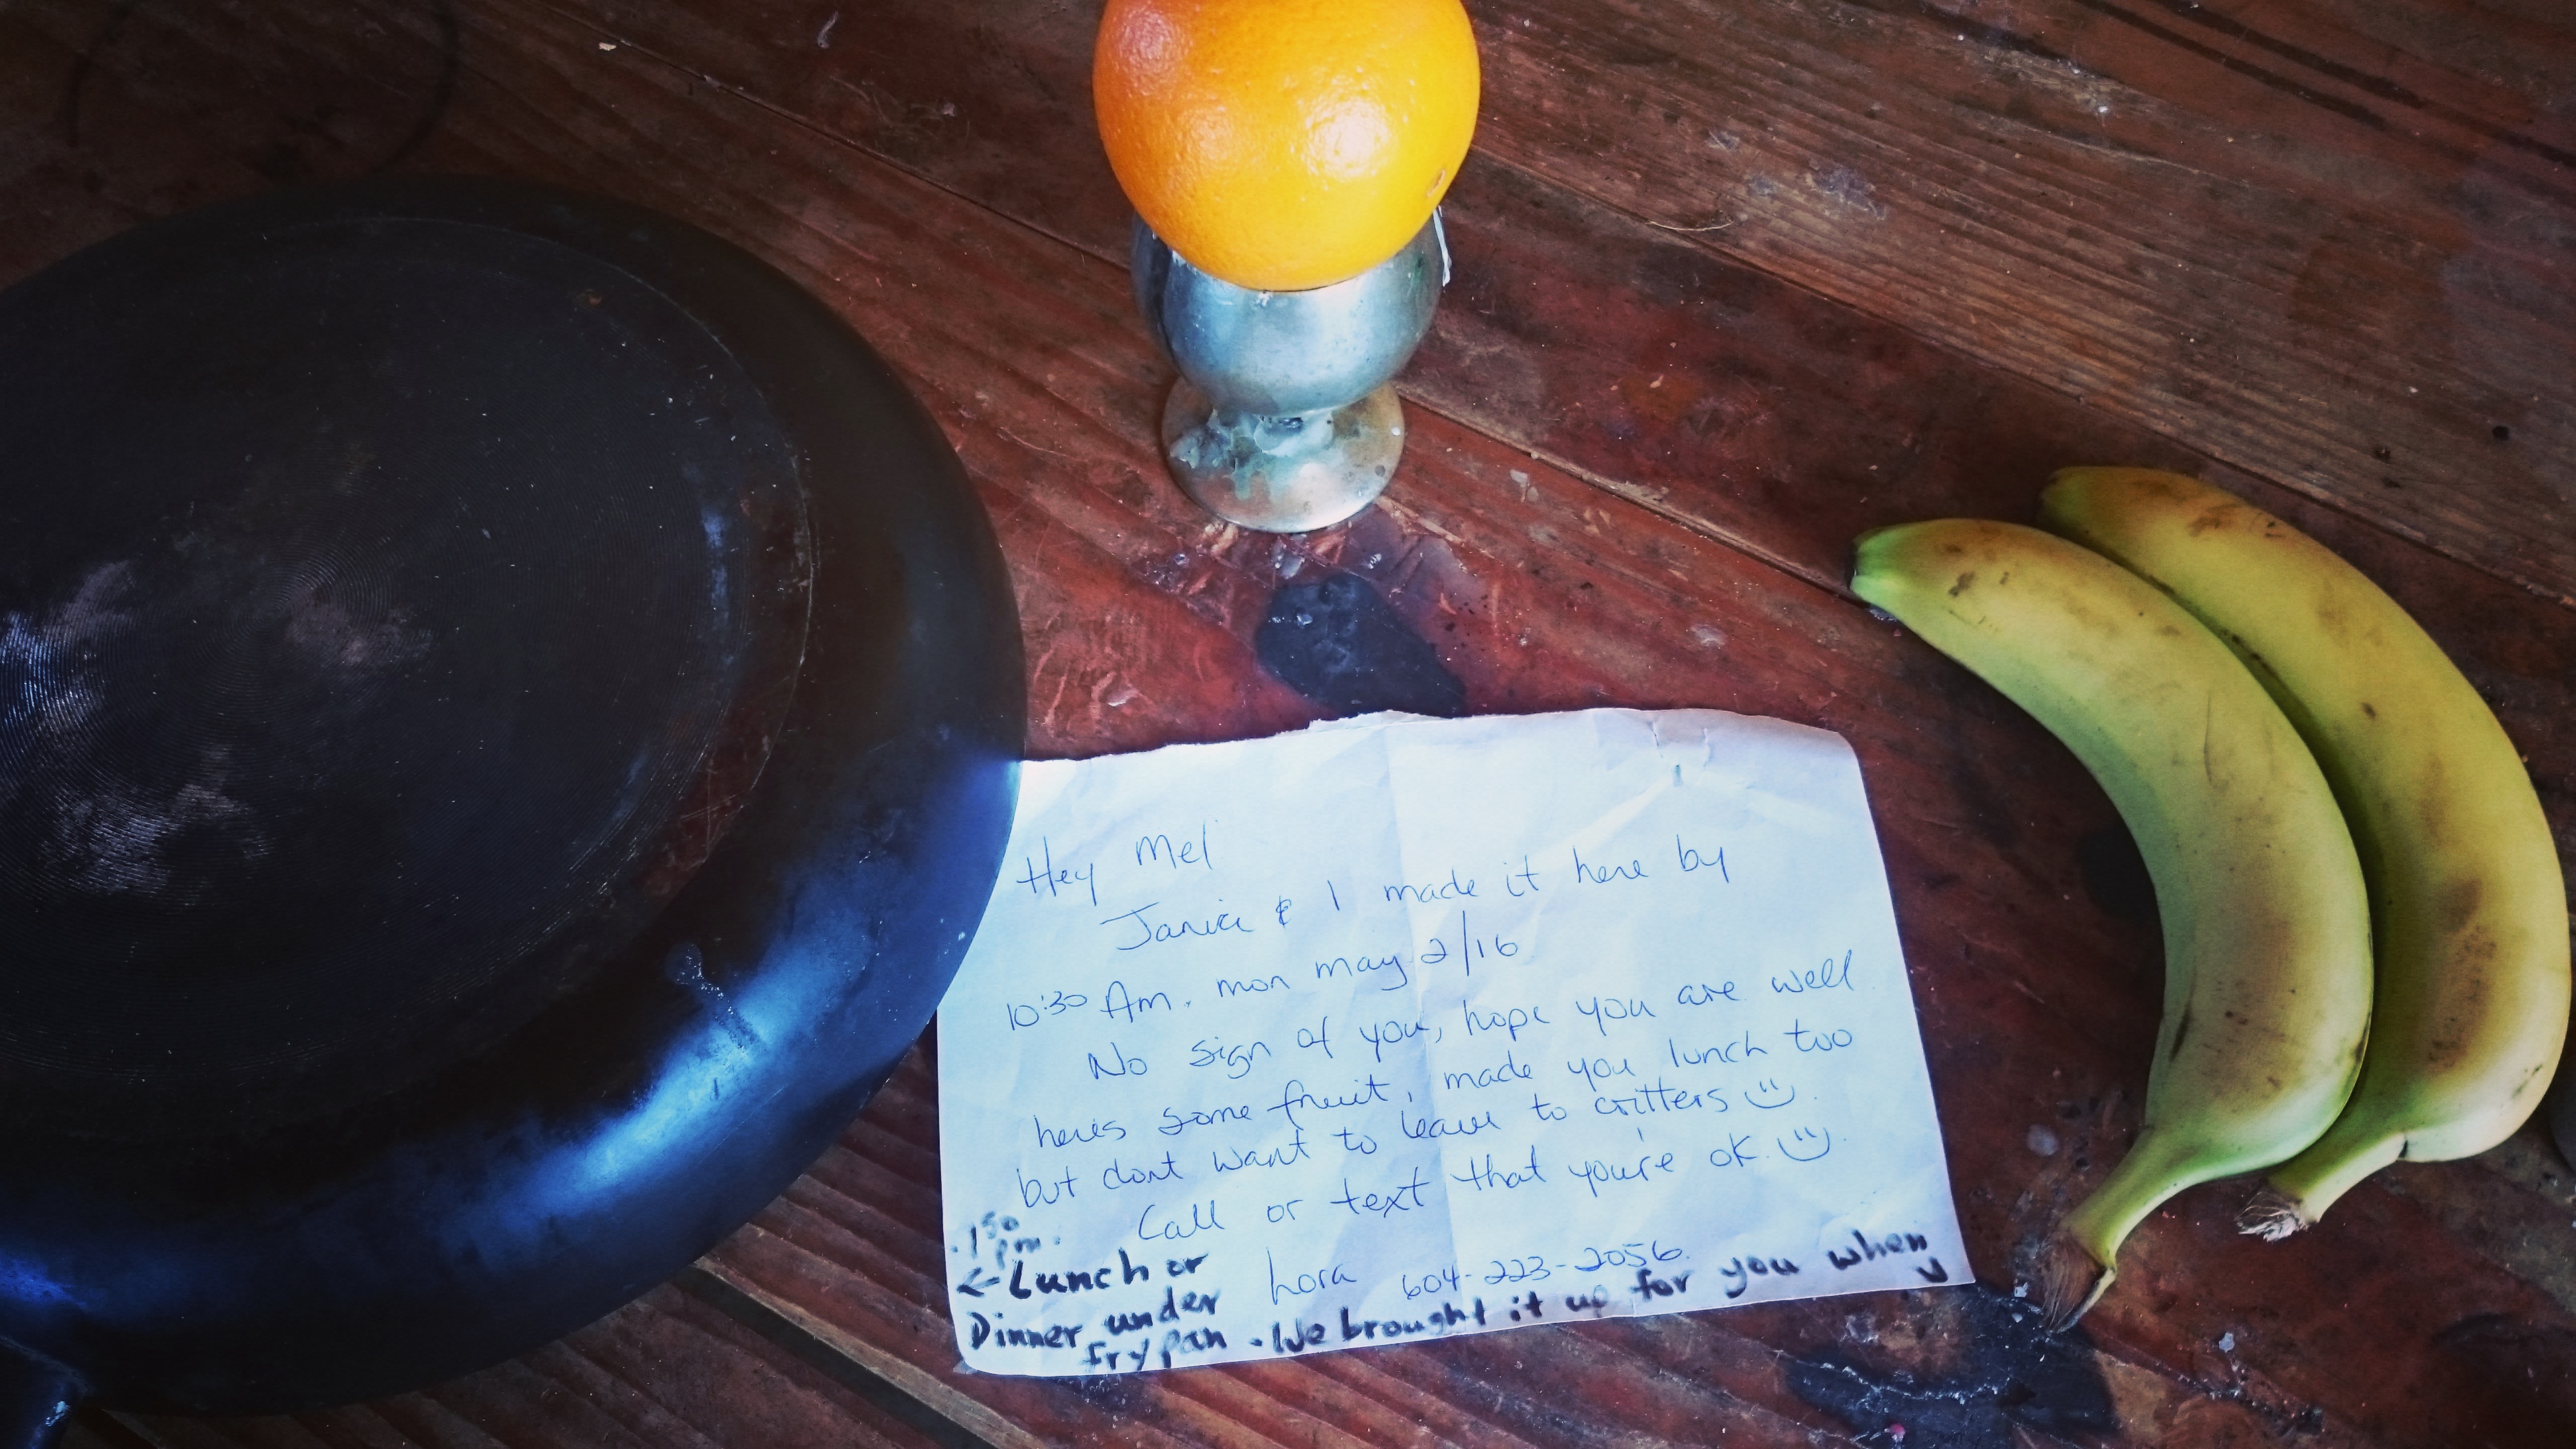 Hey Mel
Janice & I made it here by
10:30 Am. mon may 2/16
No sign of you, hope you are well
heres some fruit, made you lunch too
but dont want to leave to critters :)
Call or text that you're ok. :)
Lora 604-223-2056
.1 50 pm.
<- Lunch or
Dinner under
frypan . We brought it up for you when